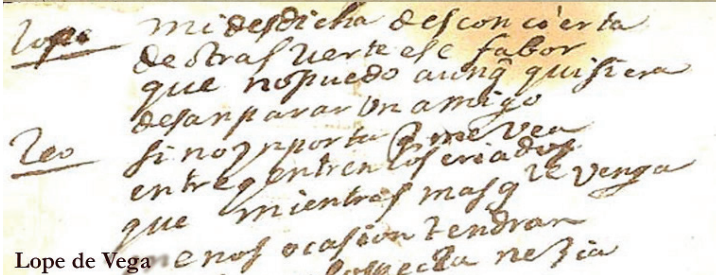 lope mi desdicha desconcierta
de otra suerte ese fabor
que no puedo aunq quisiera
desanparar un amigo
leo si no ynporta q me vea
entre q entren los criados
que mientras mas q te venga
menos ocasion tendran
sospecha nezia
Lope de Vega